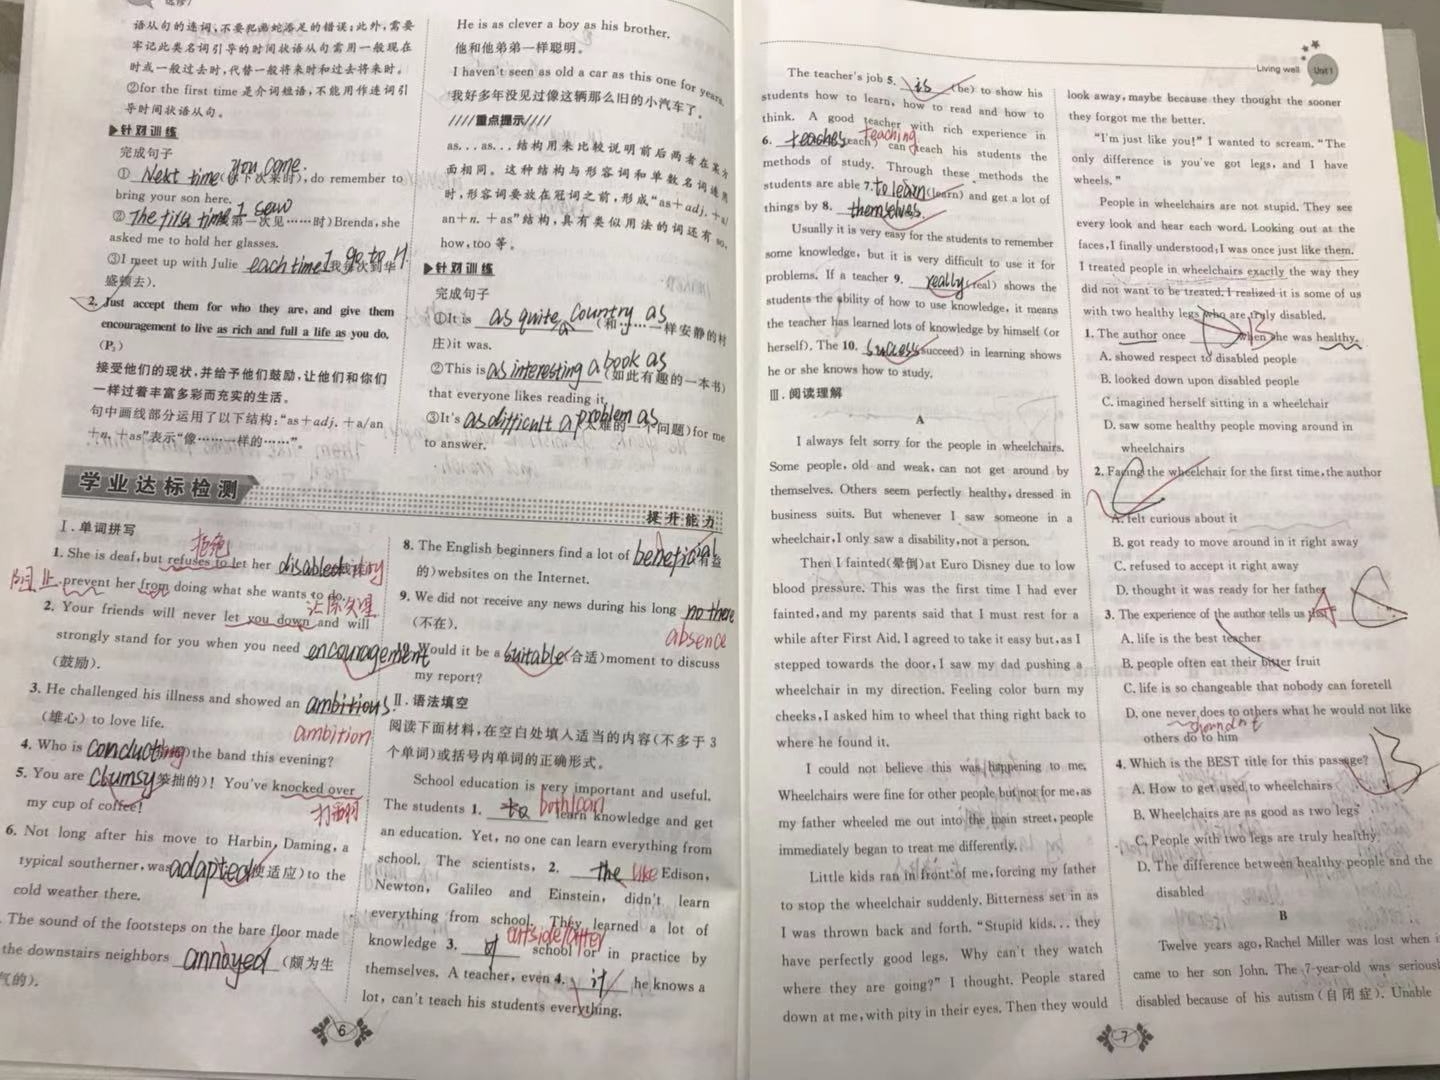 选修7
语从句的连词,不要犯画蛇添足的错误;此外,需要
牢记此类名词引导的时间状语从句需用一般现在
时或一般过去时,代替一般将来时和过去将来时。
②for the first time 是介词短语,不能用作连词引
导时间状语从句。
针对训练
完成句子
① Next time you come (下次来时),do remember to
bring your son here.
② The first time I saw (第一次见……时) Brenda, she
asked me to hold her glasses.
③I meet up with Julie each time I go to H (我每次到华
盛顿去).
2. Just accept them for who they are, and give them
encouragement to live as rich and full a life as you do.
(P₃)
接受他们的现状,并给予他们鼓励,让他们和你们
一样过着丰富多彩而充实的生活。
句中画线部分运用了以下结构:“as+adj.+a/an
+n.+as”表示“像……一样的……”。
He is as clever a boy as his brother.
他和他弟弟一样聪明。
I haven't seen as old a car as this one for years.
我好多年没见过像这辆那么旧的小汽车了。
////重点提示////
as... as... 结构用来比较说明前后两者在某方
面相同。这种结构与形容词和单数名词连用
时,形容词要放在冠词之前,形成“as+adj.+a/
an+n.+as”结构,具有类似用法的词还有so,
how,too等。
针对训练
完成句子
①It is as quite a country as (和……一样安静的村
庄)it was.
②This is as interesting a book as (如此有趣的一本书)
that everyone likes reading it.
③It's as difficult a problem as (太难的一个问题)for me
to answer.
学业达标检测
提升能力
Ⅰ.单词拼写
拒绝
1. She is deaf, but refuses to let her disabled
阻止 prevent her from doing what she wants to do.
让你失望
2. Your friends will never let you down and will
strongly stand for you when you need encouragement
(鼓励).
3. He challenged his illness and showed an ambitious
(雄心) to love life.
ambition
4. Who is conducting the band this evening?
5. You are clumsy (笨拙的)! You've knocked over
my cup of coffee!
打翻
6. Not long after his move to Harbin, Daming, a
typical southerner, was adapted (使适应)to the
cold weather there.
The sound of the footsteps on the bare floor made
the downstairs neighbors annoyed (颇为生
气的).
8. The English beginners find a lot of beneficial (有益
的)websites on the Internet.
9. We did not receive any news during his long no there
(不在).
absence
Would it be a suitable (合适)moment to discuss
my report?
Ⅱ.语法填空
阅读下面材料,在空白处填入适当的内容(不多于 3
个单词)或括号内单词的正确形式。
School education is very important and useful.
The students 1. to both/can learn knowledge and get
an education. Yet, no one can learn everything from
school. The scientists, 2. the like Edison,
Newton, Galileo and Einstein, didn't learn
everything from school. They learned a lot of
knowledge 3. of outside/after school or in practice by
themselves. A teacher, even 4. if he knows a
lot, can't teach his students everything.
6
Living well Unit 1
The teacher's job 5. is (be) to show his
students how to learn, how to read and how to
think. A good teacher with rich experience in
6. teaches teaching (teach) can teach his students the
methods of study. Through these methods the
students are able 7. to learn (learn) and get a lot of
things by 8. themselves.
Usually it is very easy for the students to remember
some knowledge, but it is very difficult to use it for
problems. If a teacher 9. really (real) shows the
students the ability of how to use knowledge, it means
the teacher has learned lots of knowledge by himself (or
herself). The 10. success (succeed) in learning shows
he or she knows how to study.
Ⅲ.阅读理解
A
I always felt sorry for the people in wheelchairs.
Some people, old and weak, can not get around by
themselves. Others seem perfectly healthy, dressed in
business suits. But whenever I saw someone in a
wheelchair, I only saw a disability, not a person.
Then I fainted(晕倒)at Euro Disney due to low
blood pressure. This was the first time I had ever
fainted, and my parents said that I must rest for a
while after First Aid. I agreed to take it easy but, as I
stepped towards the door, I saw my dad pushing a
wheelchair in my direction. Feeling color burn my
cheeks, I asked him to wheel that thing right back to
where he found it.
I could not believe this was happening to me.
Wheelchairs were fine for other people but not for me, as
my father wheeled me out into the main street, people
immediately began to treat me differently.
Little kids ran in front of me, forcing my father
to stop the wheelchair suddenly. Bitterness set in as
I was thrown back and forth. “Stupid kids... they
have perfectly good legs. Why can't they watch
where they are going?” I thought. People stared
down at me, with pity in their eyes. Then they would
look away, maybe because they thought the sooner
they forgot me the better.
“I'm just like you!” I wanted to scream. “The
only difference is you've got legs, and I have
wheels.”
People in wheelchairs are not stupid. They see
every look and hear each word. Looking out at the
faces, I finally understood: I was once just like them.
I treated people in wheelchairs exactly the way they
did not want to be treated. I realized it is some of us
with two healthy legs who are truly disabled.
1. The author once D B when she was healthy.
A. showed respect to disabled people
B. looked down upon disabled people
C. imagined herself sitting in a wheelchair
D. saw some healthy people moving around in
wheelchairs
2. Facing the wheelchair for the first time, the author
C
A. felt curious about it
B. got ready to move around in it right away
C. refused to accept it right away
D. thought it was ready for her father
3. The experience of the author tells us that A C
A. life is the best teacher
B. people often eat their bitter fruit
C. life is so changeable that nobody can foretell
D. one never does to others what he would not like
others do to him
4. Which is the BEST title for this passage? B
A. How to get used to wheelchairs
B. Wheelchairs are as good as two legs
C. People with two legs are truly healthy
D. The difference between healthy people and the
disabled
B
Twelve years ago, Rachel Miller was lost when i
came to her son John. The 7-year-old was serious
disabled because of his autism (自闭症). Unable
7